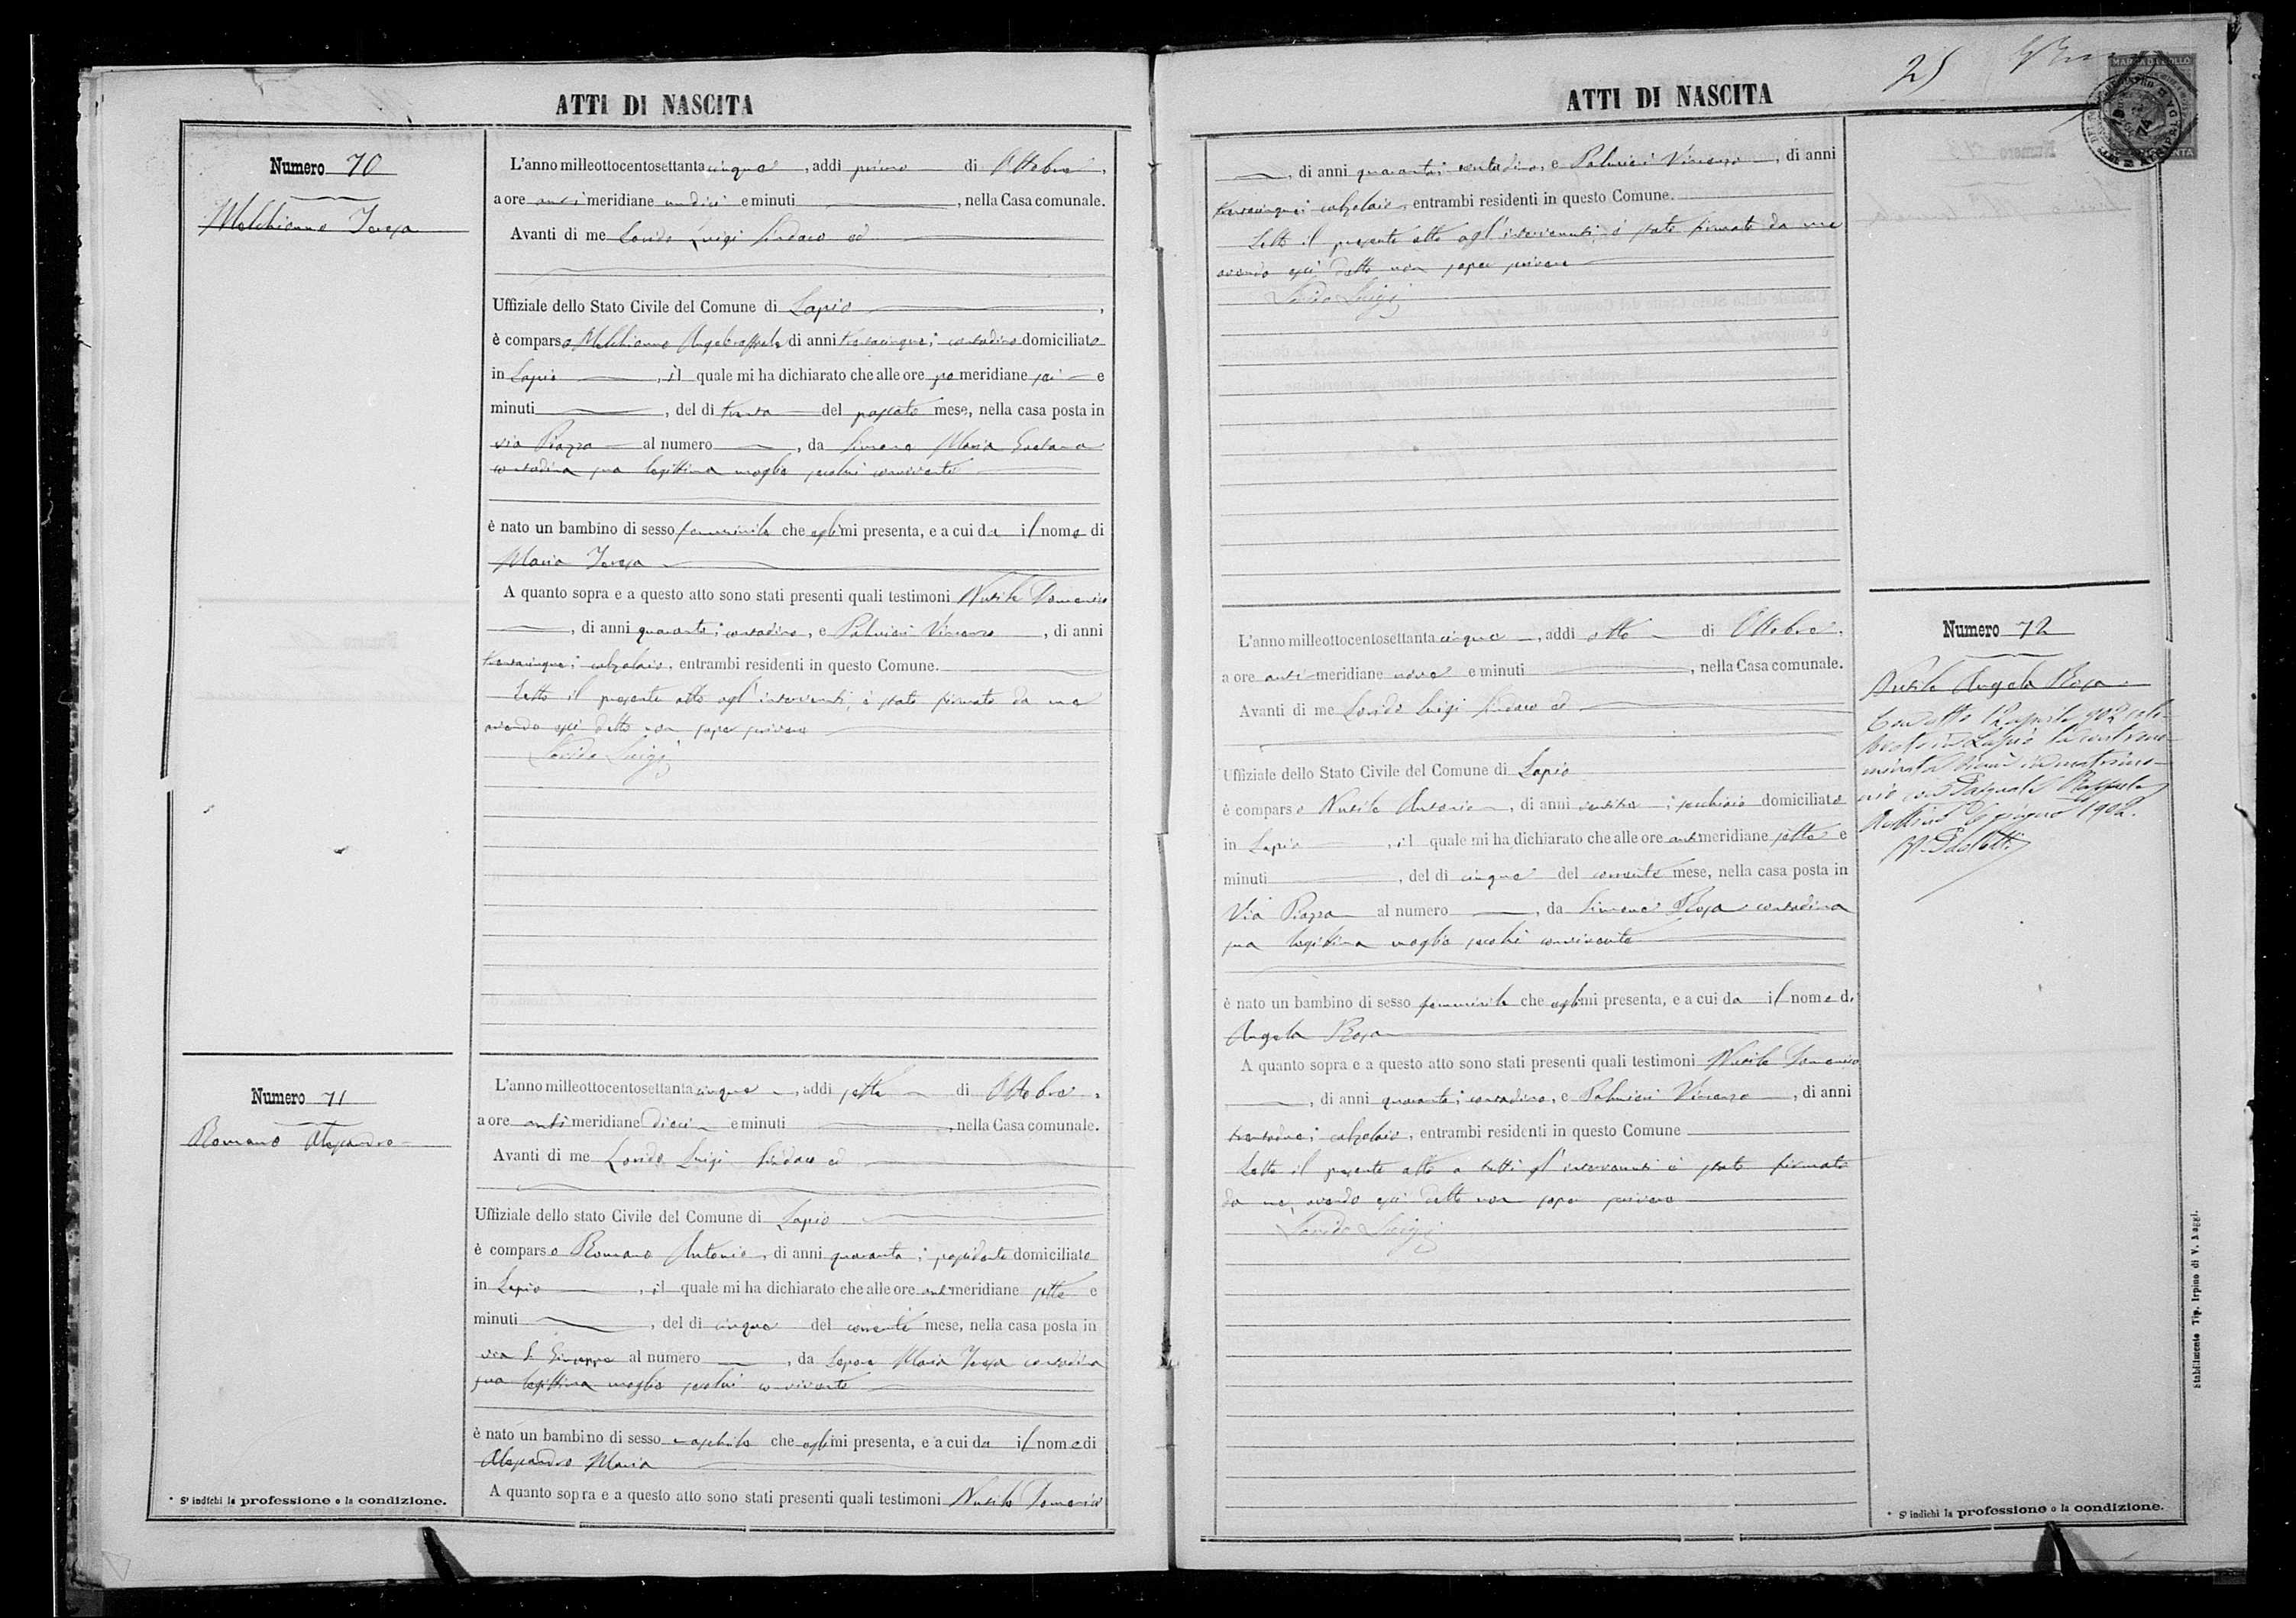 ATTI DI NASCITA
Numero 70
Melchionno Teresa
L'anno milleottocentosettanta cinque, addì primo di Ottobre,
a ore anti meridiane undici e minuti , nella Casa comunale.
Avanti di me Lonido Luigi Sindaco ed
Uffiziale dello Stato Civile del Comune di Lapio,
è comparso Melchionno Angelraffaele di anni trentacinque; contadino domiciliato
in Lapio, il quale mi ha dichiarato che alle ore po meridiane sei e
minuti , del dì trenta del passato mese, nella casa posta in
via Piazza al numero , da Simone Maria Gaetana
contadina sua legittima moglie secolui convivente
è nato un bambino di sesso femminile che egli mi presenta, e a cui da il nome di
Maria Teresa
A quanto sopra e a questo atto sono stati presenti quali testimoni Nusile Domenico
, di anni quaranta; contadino, e Palmieri Vincenzo, di anni
trentacinque; calzolaio, entrambi residenti in questo Comune.
Letto il presente atto agl'intervenuti, è stato firmato da me
avendo essi detto non saper scrivere
Lonido Luigi
Numero 71
Romano Alessandro
L'anno milleottocentosettanta cinque, addì sette di Ottobre,
a ore anti meridiane dieci e minuti , nella Casa comunale.
Avanti di me Lonido Luigi Sindaco ed
Uffiziale dello stato Civile del Comune di Lapio
è comparso Romano Antonio, di anni quaranta; possidente domiciliato
in Lapio, il quale mi ha dichiarato che alle ore anti meridiane sette e
minuti , del dì cinque del corrente mese, nella casa posta in
via S. Giuseppe al numero , da Lepore Maria Teresa contadina
sua legittima moglie secolui convivente
è nato un bambino di sesso maschile che egli mi presenta, e a cui da il nome di
Alessandro Maria
A quanto sopra e a questo atto sono stati presenti quali testimoni Nusile Domenico
* S'indichi la professione o la condizione.
ATTI DI NASCITA
25
MARCA DA BOLLO
, di anni quaranta; contadino, e Palmieri Vincenzo, di anni
trentacinque; calzolaio, entrambi residenti in questo Comune.
Letto il presente atto agl'intervenuti, è stato firmato da me
avendo essi detto non saper scrivere
Lonido Luigi
Numero 72
Nusile Angela Rosa
Con atto 12 aprile 902 cele-
brato in Lapio la controno-
minata si unì in matrimo-
nio con Pasquale Raffaele
6 giugno 1902.
L'anno milleottocentosettanta cinque, addì otto di Ottobre,
a ore anti meridiane nove e minuti , nella Casa comunale.
Avanti di me Lonido Luigi Sindaco ed
Uffiziale dello Stato Civile del Comune di Lapio
è comparso Nusile Antonio, di anni ; domiciliato
in Lapio, il quale mi ha dichiarato che alle ore anti meridiane sette e
minuti , del dì cinque del corrente mese, nella casa posta in
Via Piazza al numero , da Simone Rosa contadina
sua legittima moglie secolui convivente
è nato un bambino di sesso femminile che egli mi presenta, e a cui da il nome di
Angela Rosa
A quanto sopra e a questo atto sono stati presenti quali testimoni Nusile Domenico
, di anni quaranta; contadino, e Palmieri Vincenzo, di anni
; calzolaio, entrambi residenti in questo Comune
Letto il presente atto a tutti gl'intervenuti è stato firmato
da me, avendo essi detto non saper scrivere
Lonido Luigi
* S'indichi la professione o la condizione.
Stabilimento Tip. Irpino di V. Maggi.